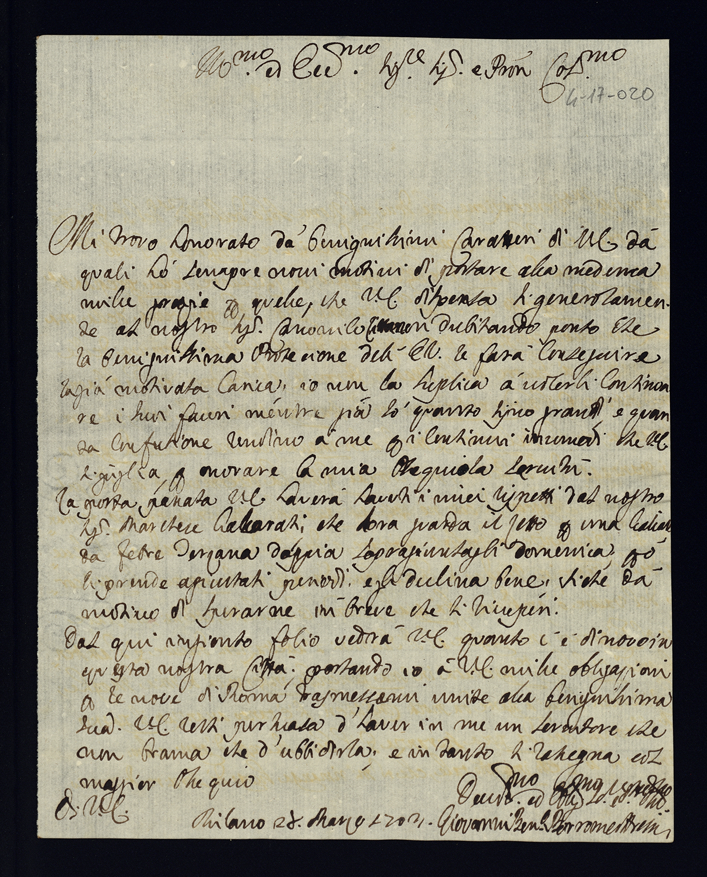 Ill.mo ed Ecc.mo Sig.re Sig. e Pron Col.mo
4-17-020
Mi trovo honorato dà benignissimi Caratteri di V.E. dà
quali hò sempre novi motivi di portare alla medema
mille grazie p quelle, che V.E. dispensa si generosamen-
te al nostro Sig. Canonico dubitando ponto che
la benignissima Protezione dell' E.V. le farà conseguire
la già motivata Carica, io non la supplica à volerli Continua
re i suoi favori mentre già sò quanto siino grandi e quan
ta confusione rendino à me i Continui incomodi che V.E.
si piglia p onorare la mia Ossequiosa servitù.
La posta passata V.E. haverà havuti i miei rispetti dal nostro
Sig. Marchese che hora guarda il letto p una
da febre Terzana doppia sopragiuntagli domenica, però
si prende agiustati rimedi egli declina bene, si che dà
motivo di sperarne in breve che si ricuperi.
Dal qui ingionto folio vedrà V.E. quanto c'è di novo in
questa nostra Città, portando io à V.E. mille obligazioni
p le nove di Roma trasmessemi unite alla benignissima
sua. V.E. resti persuasa d'haver in me un servidore che
non brama che d'ubbidirla, e in tanto si rassegna col
maggior Ossequio
Di V.E.
Devot.mo ed Obl.mo
Milano 28. Marzo Giovanni Borromeo Arese